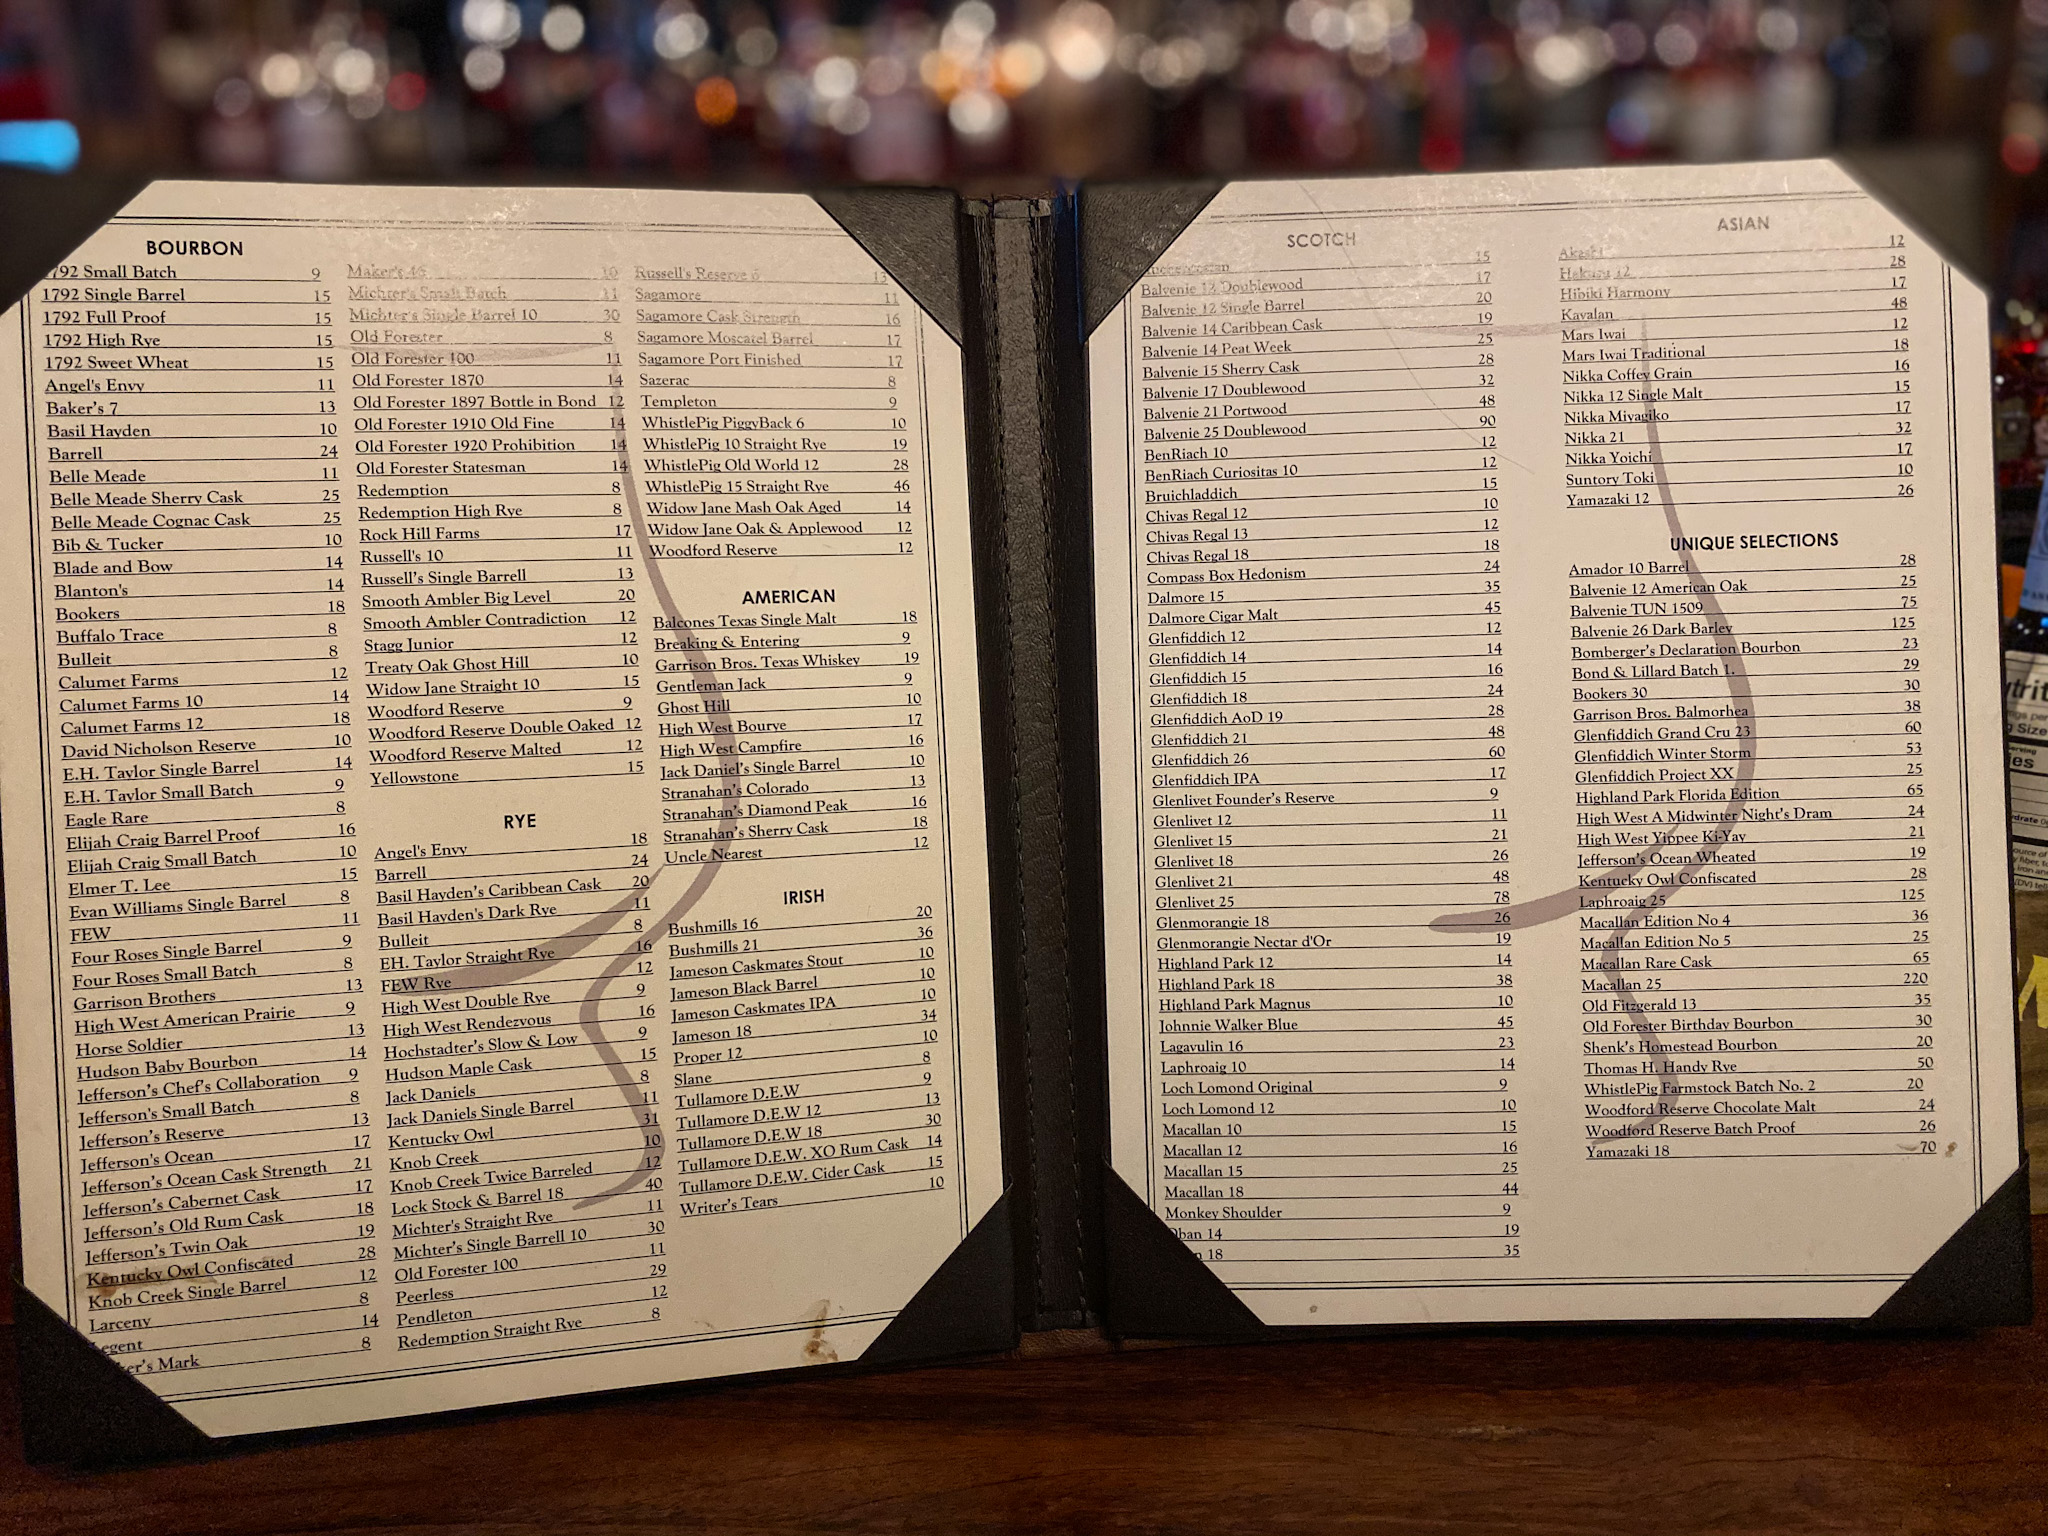 BOURBON
1792 Small Batch 9
1792 Single Barrel 15
1792 Full Proof 15
1792 High Rye 15
1792 Sweet Wheat 15
Angel's Envy 11
Baker's 7 13
Basil Hayden 10
Barrell 24
Belle Meade 11
Belle Meade Sherry Cask 25
Belle Meade Cognac Cask 25
Bib & Tucker 10
Blade and Bow 14
Blanton's 14
Bookers 18
Buffalo Trace 8
Bulleit 8
Calumet Farms 12
Calumet Farms 10 14
Calumet Farms 12 18
David Nicholson Reserve 10
E.H. Taylor Single Barrel 14
E.H. Taylor Small Batch 9
Eagle Rare 8
Elijah Craig Barrel Proof 16
Elijah Craig Small Batch 10
Elmer T. Lee 15
Evan Williams Single Barrel 8
FEW 11
Four Roses Single Barrel 9
Four Roses Small Batch 8
Garrison Brothers 13
High West American Prairie 9
Horse Soldier 13
Hudson Baby Bourbon 14
Jefferson's Chef's Collaboration 9
Jefferson's Small Batch 8
Jefferson's Reserve 13
Jefferson's Ocean 17
Jefferson's Ocean Cask Strength 21
Jefferson's Cabernet Cask 17
Jefferson's Old Rum Cask 18
Jefferson's Twin Oak 19
Kentucky Owl Confiscated 28
Knob Creek Single Barrel 12
Larceny 8
Legent 14
ker's Mark 8
Maker's 46 10
Michter's Small Batch 11
Michter's Single Barrel 10 30
Old Forester 8
Old Forester 100 11
Old Forester 1870 14
Old Forester 1897 Bottle in Bond 12
Old Forester 1910 Old Fine 14
Old Forester 1920 Prohibition 14
Old Forester Statesman 14
Redemption 8
Redemption High Rye 8
Rock Hill Farms 17
Russell's 10 11
Russell's Single Barrell 13
Smooth Ambler Big Level 20
Smooth Ambler Contradiction 12
Stagg Junior 12
Treaty Oak Ghost Hill 10
Widow Jane Straight 10 15
Woodford Reserve 9
Woodford Reserve Double Oaked 12
Woodford Reserve Malted 12
Yellowstone 15
RYE
Angel's Envy 18
Barrell 24
Basil Hayden's Caribbean Cask 20
Basil Hayden's Dark Rye 11
Bulleit 8
EH. Taylor Straight Rye 16
FEW Rye 12
High West Double Rye 9
High West Rendezvous 16
Hochstadter's Slow & Low 9
Hudson Maple Cask 15
Jack Daniels 8
Jack Daniels Single Barrel 11
Kentucky Owl 31
Knob Creek 10
Knob Creek Twice Barreled 12
Lock Stock & Barrel 18 40
Michter's Straight Rye 11
Michter's Single Barrell 10 30
Old Forester 100 11
Peerless 29
Pendleton 12
Redemption Straight Rye 8
Russell's Reserve 6 13
Sagamore 11
Sagamore Cask Strength 16
Sagamore Moscatel Barrel 17
Sagamore Port Finished 17
Sazerac 8
Templeton 9
WhistlePig PiggyBack 6 10
WhistlePig 10 Straight Rye 19
WhistlePig Old World 12 28
WhistlePig 15 Straight Rye 46
Widow Jane Mash Oak Aged 14
Widow Jane Oak & Applewood 12
Woodford Reserve 12
AMERICAN
Balcones Texas Single Malt 18
Breaking & Entering 9
Garrison Bros. Texas Whiskey 19
Gentleman Jack 9
Ghost Hill 10
High West Bourye 17
High West Campfire 16
Jack Daniel's Single Barrel 10
Stranahan's Colorado 13
Stranahan's Diamond Peak 16
Stranahan's Sherry Cask 18
Uncle Nearest 12
IRISH
Bushmills 16 20
Bushmills 21 36
Jameson Caskmates Stout 10
Jameson Black Barrel 10
Jameson Caskmates IPA 10
Jameson 18 34
Proper 12 10
Slane 8
Tullamore D.E.W 9
Tullamore D.E.W 12 13
Tullamore D.E.W 18 30
Tullamore D.E.W. XO Rum Cask 14
Tullamore D.E.W. Cider Cask 15
Writer's Tears 10
SCOTCH
15
Balvenie 12 Doublewood 17
Balvenie 12 Single Barrel 20
Balvenie 14 Caribbean Cask 19
Balvenie 14 Peat Week 25
Balvenie 15 Sherry Cask 28
Balvenie 17 Doublewood 32
Balvenie 21 Portwood 48
Balvenie 25 Doublewood 90
BenRiach 10 12
BenRiach Curiositas 10 12
Bruichladdich 15
Chivas Regal 12 10
Chivas Regal 13 12
Chivas Regal 18 18
Compass Box Hedonism 24
Dalmore 15 35
Dalmore Cigar Malt 45
Glenfiddich 12 12
Glenfiddich 14 14
Glenfiddich 15 16
Glenfiddich 18 24
Glenfiddich AoD 19 28
Glenfiddich 21 48
Glenfiddich 26 60
Glenfiddich IPA 17
Glenlivet Founder's Reserve 9
Glenlivet 12 11
Glenlivet 15 21
Glenlivet 18 26
Glenlivet 21 48
Glenlivet 25 78
Glenmorangie 18 26
Glenmorangie Nectar d'Or 19
Highland Park 12 14
Highland Park 18 38
Highland Park Magnus 10
Johnnie Walker Blue 45
Lagavulin 16 23
Laphroaig 10 14
Loch Lomond Original 9
Loch Lomond 12 10
Macallan 10 15
Macallan 12 16
Macallan 15 25
Macallan 18 44
Monkey Shoulder 9
Oban 14 19
n 18 35
ASIAN
Akashi 12
Hakusu 12 28
Hibiki Harmony 17
Kavalan 48
Mars Iwai 12
Mars Iwai Traditional 18
Nikka Coffey Grain 16
Nikka 12 Single Malt 15
Nikka Miyagiko 17
Nikka 21 32
Nikka Yoichi 17
Suntory Toki 10
Yamazaki 12 26
UNIQUE SELECTIONS
Amador 10 Barrel 28
Balvenie 12 American Oak 25
Balvenie TUN 1509 75
Balvenie 26 Dark Barley 125
Bomberger's Declaration Bourbon 23
Bond & Lillard Batch 1. 29
Bookers 30 30
Garrison Bros. Balmorhea 38
Glenfiddich Grand Cru 23 60
Glenfiddich Winter Storm 53
Glenfiddich Project XX 25
Highland Park Florida Edition 65
High West A Midwinter Night's Dram 24
High West Yippee Ki-Yay 21
Jefferson's Ocean Wheated 19
Kentucky Owl Confiscated 28
Laphroaig 25 125
Macallan Edition No 4 36
Macallan Edition No 5 25
Macallan Rare Cask 65
Macallan 25 220
Old Fitzgerald 13 35
Old Forester Birthday Bourbon 30
Shenk's Homestead Bourbon 20
Thomas H. Handy Rye 50
WhistlePig Farmstock Batch No. 2 20
Woodford Reserve Chocolate Malt 24
Woodford Reserve Batch Proof 26
Yamazaki 18 70